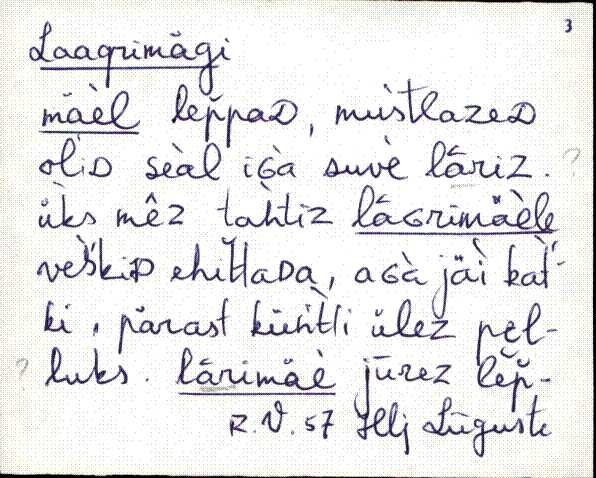 3
Laagrimägi
mäèl lep̆paD, mùstlazeD
olìD seàl iGà suvè lāriz. ?
ǜks mêz tahtiz lāGrimäèle
veškiD ehìtlaDa, aGà jäì kàt-
ki, pärast künti ülez pel-
? luks. lārimäè jūrez lep̆p̆-
R.V. 57 Hlj Lūguste